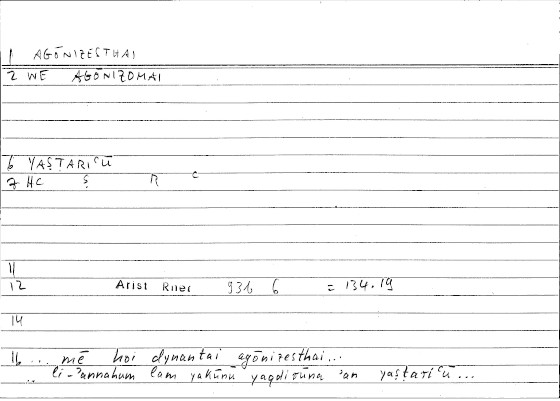 1 AGŌNIZESTHAI
2 WE AGŌNIZOMAI
6 YAṢṬARIʿŪ
7 HC Ṣ R C
11
12 Arist Rhet 6 = 134.19
14
16 ... mē hoi dynantai agōnizesthai...
.. li-ʾannahum lam yakūnū yaqdirūna ʾan yaṣṭariʿū ...